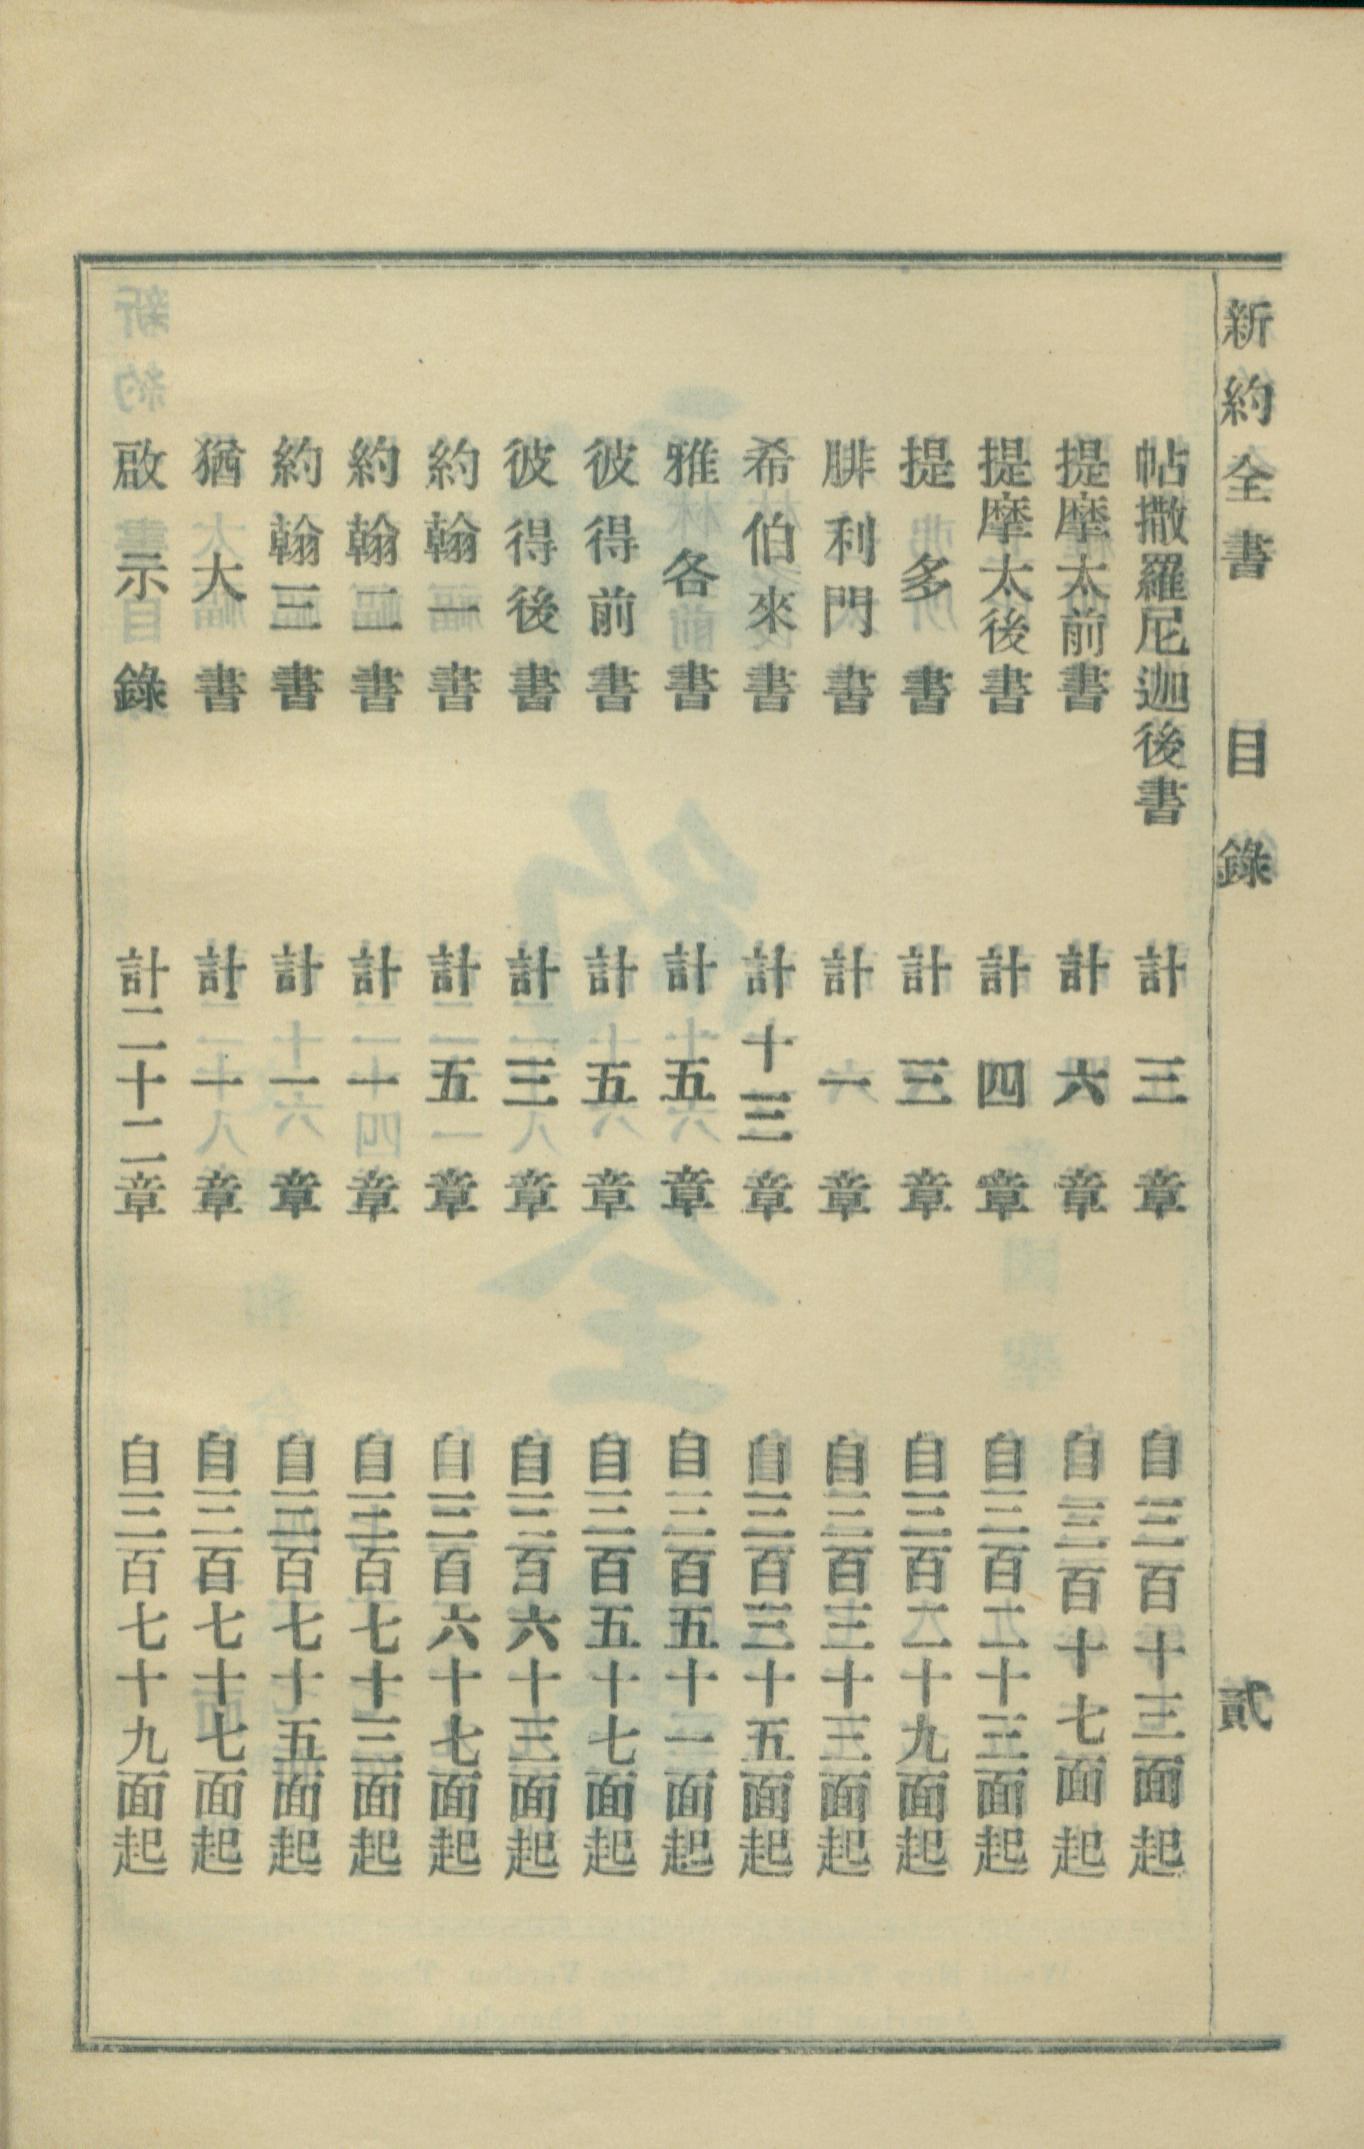 新約全書 目錄 貳
帖撒羅尼迦後書 計三章 自三百十三面起
提摩太前書 計六章 自三百十七面起
提摩太後書 計四章 自三百二十三面起
提多書 計三章 自三百二十九面起
腓利門書 計一章 自三百三十三面起
希伯來書 計十三章 自三百三十五面起
雅各書 計五章 自三百五十一面起
彼得前書 計五章 自三百五十七面起
彼得後書 計三章 自三百六十三面起
約翰一書 計五章 自三百六十七面起
約翰二書 計一章 自三百七十三面起
約翰三書 計一章 自三百七十五面起
猶大書 計一章 自三百七十七面起
啟示錄 計二十二章 自三百七十九面起